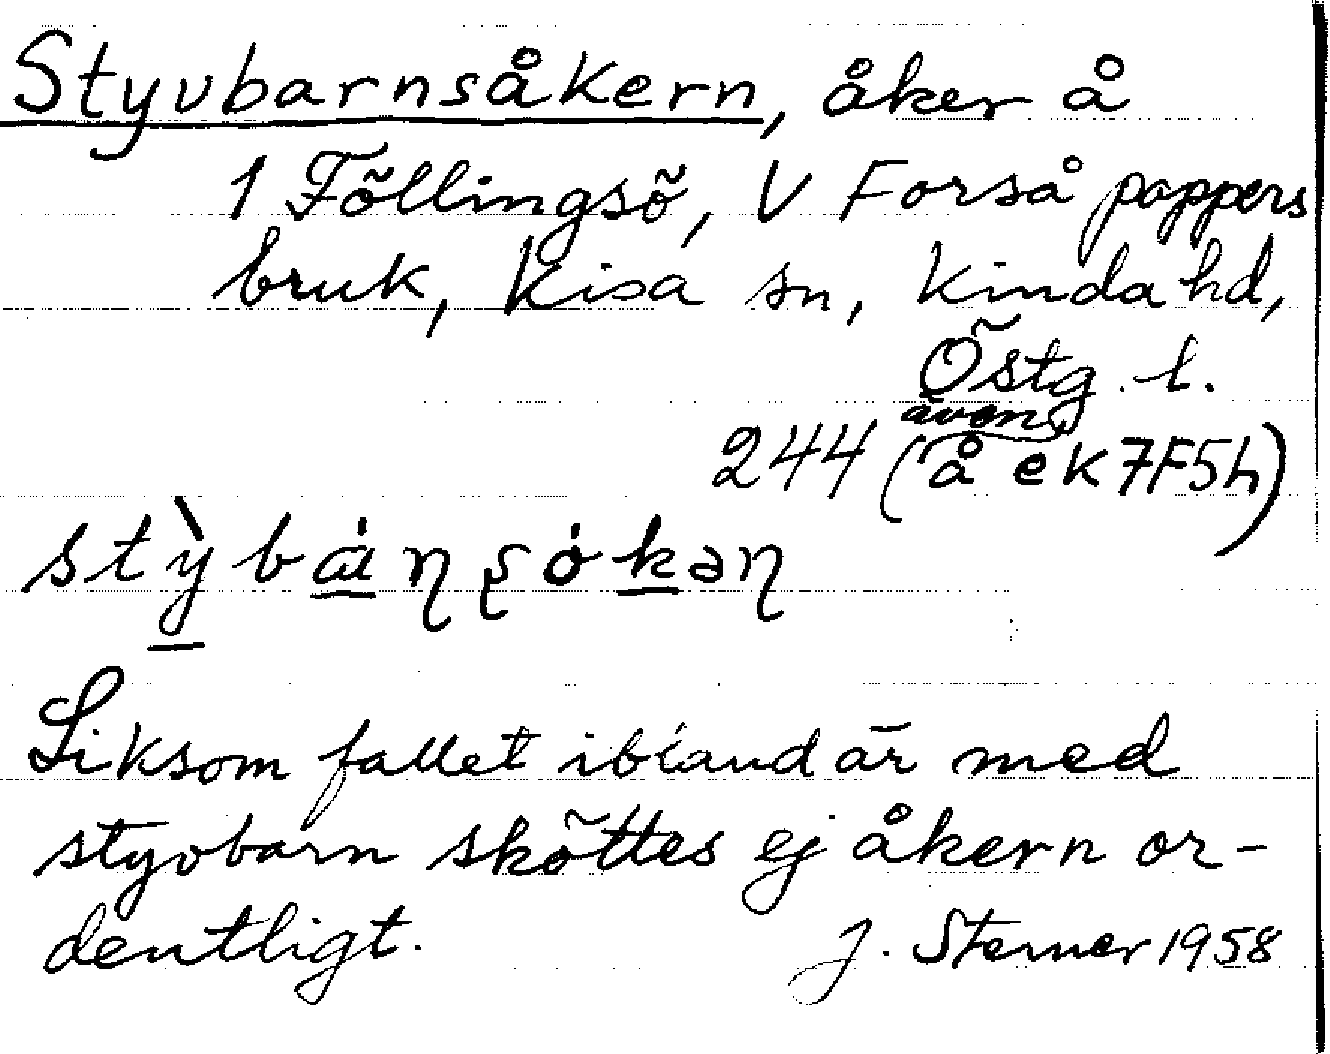 Styvbarnsåkern, åker å
1 Föllingsö, V Forså pappers
bruk, Kisa sn, Kinda hd,
Östg. l.
även
244 (å ek7F5h)
stỳbánsókən
Liksom fallet ibland är med
styvbarn sköttes ej åkern or-
dentligt. J. Sterner 1958